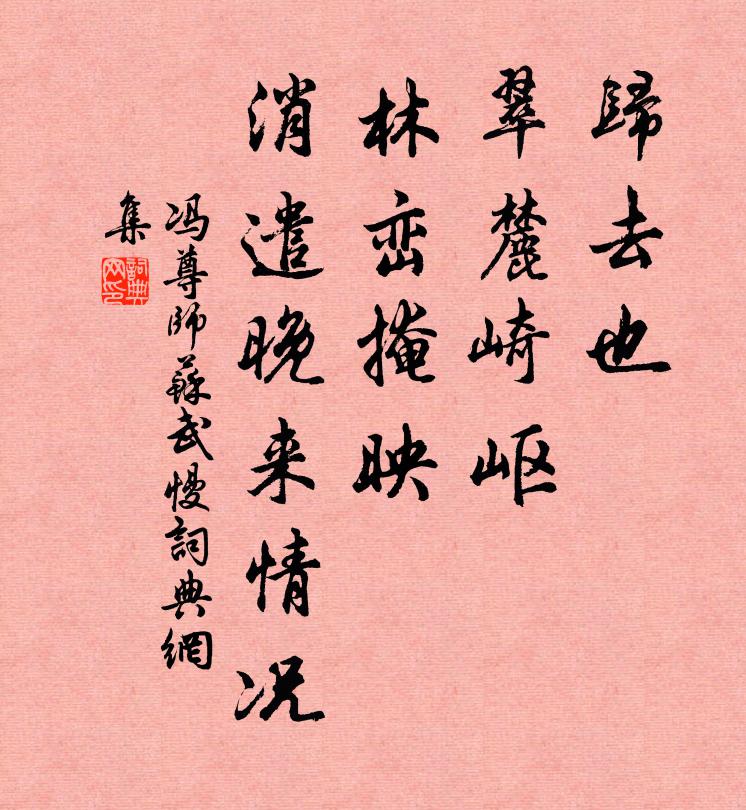 歸去也
翠麓崎岖
林峦掩映
消遣晚来情况
冯尊师蘇武慢詞典網
集
詞典
网印